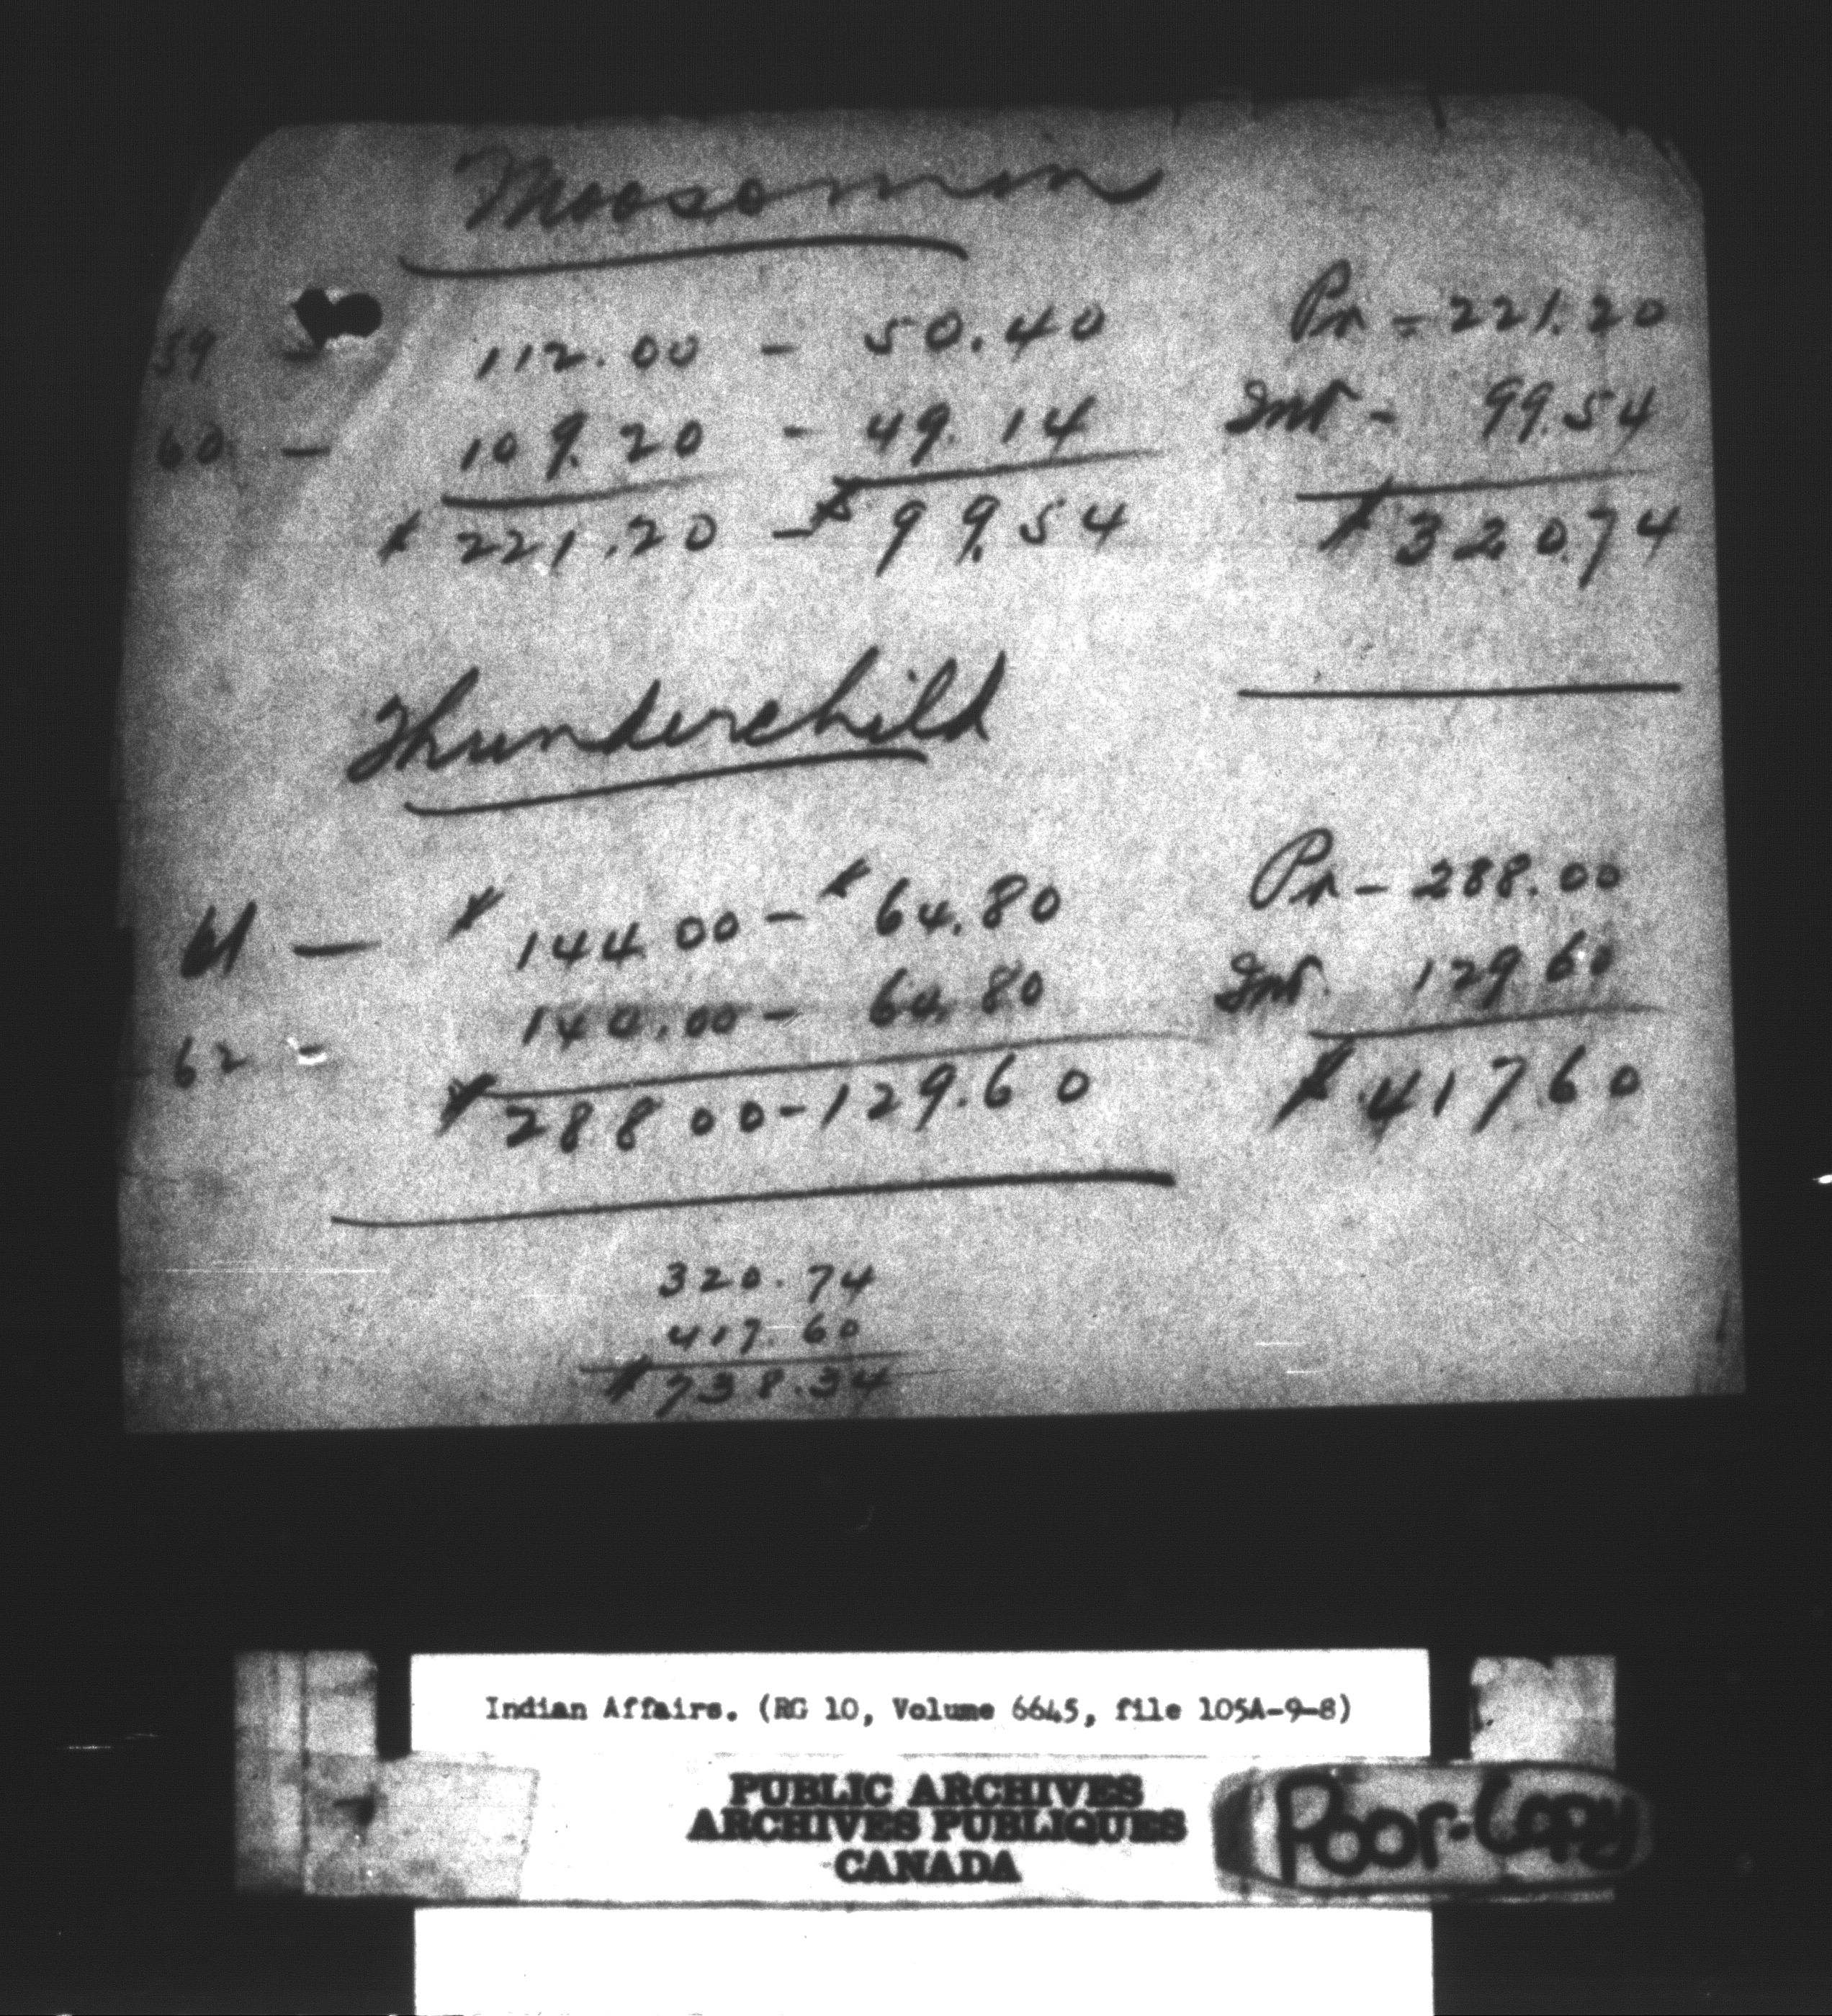 Moosomin
59 - 112.00 - 50.40 Pr - 221.20
60 - 109.20 - 49.14 Int - 99.54
$ 221.20 - $ 99.54 $ 320.74
Thunderchild
61 - $ 144.00 - $ 64.80 Pr - 288.00
62 - 144.00 - 64.80 Int. 129.60
$ 288 00 - 129.60 $ 417.60
320.74
417.60
$ 738.34
Indian Affairs. (RG 10, Volume 6645, file 105A-9-8)
PUBLIC ARCHIVES
ARCHIVES PUBLIQUES
CANADA
Poor-Copy